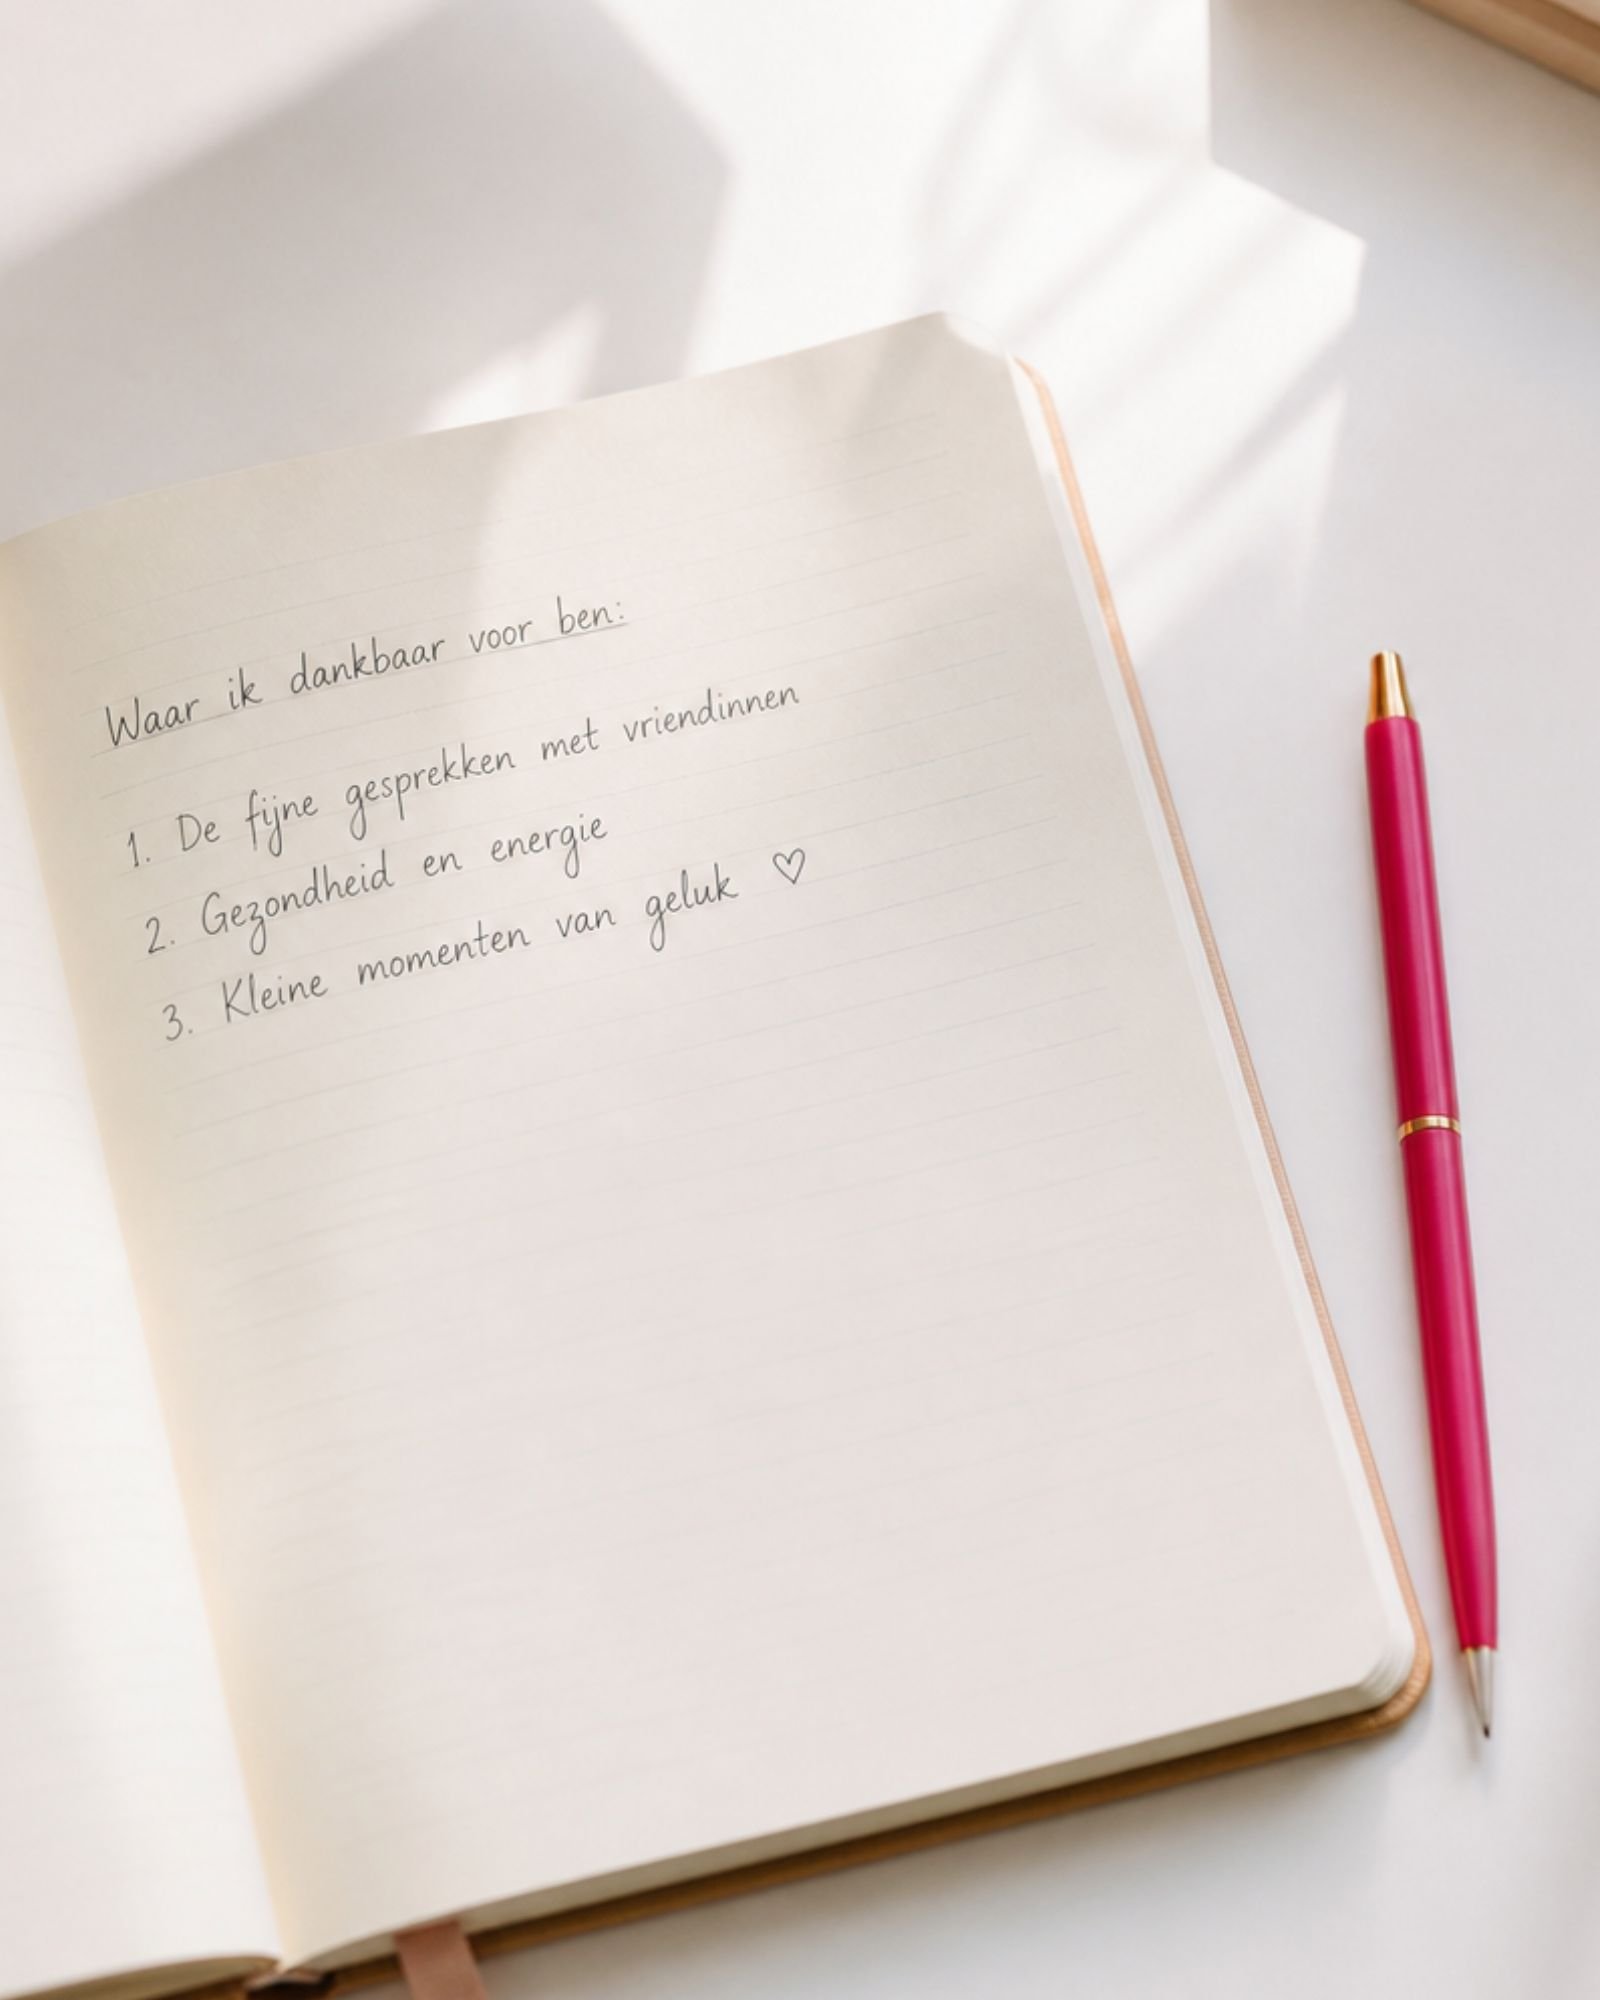 Waar ik dankbaar voor ben:
1. De fijne gesprekken met vriendinnen
2. Gezondheid en energie
3. Kleine momenten van geluk ♡